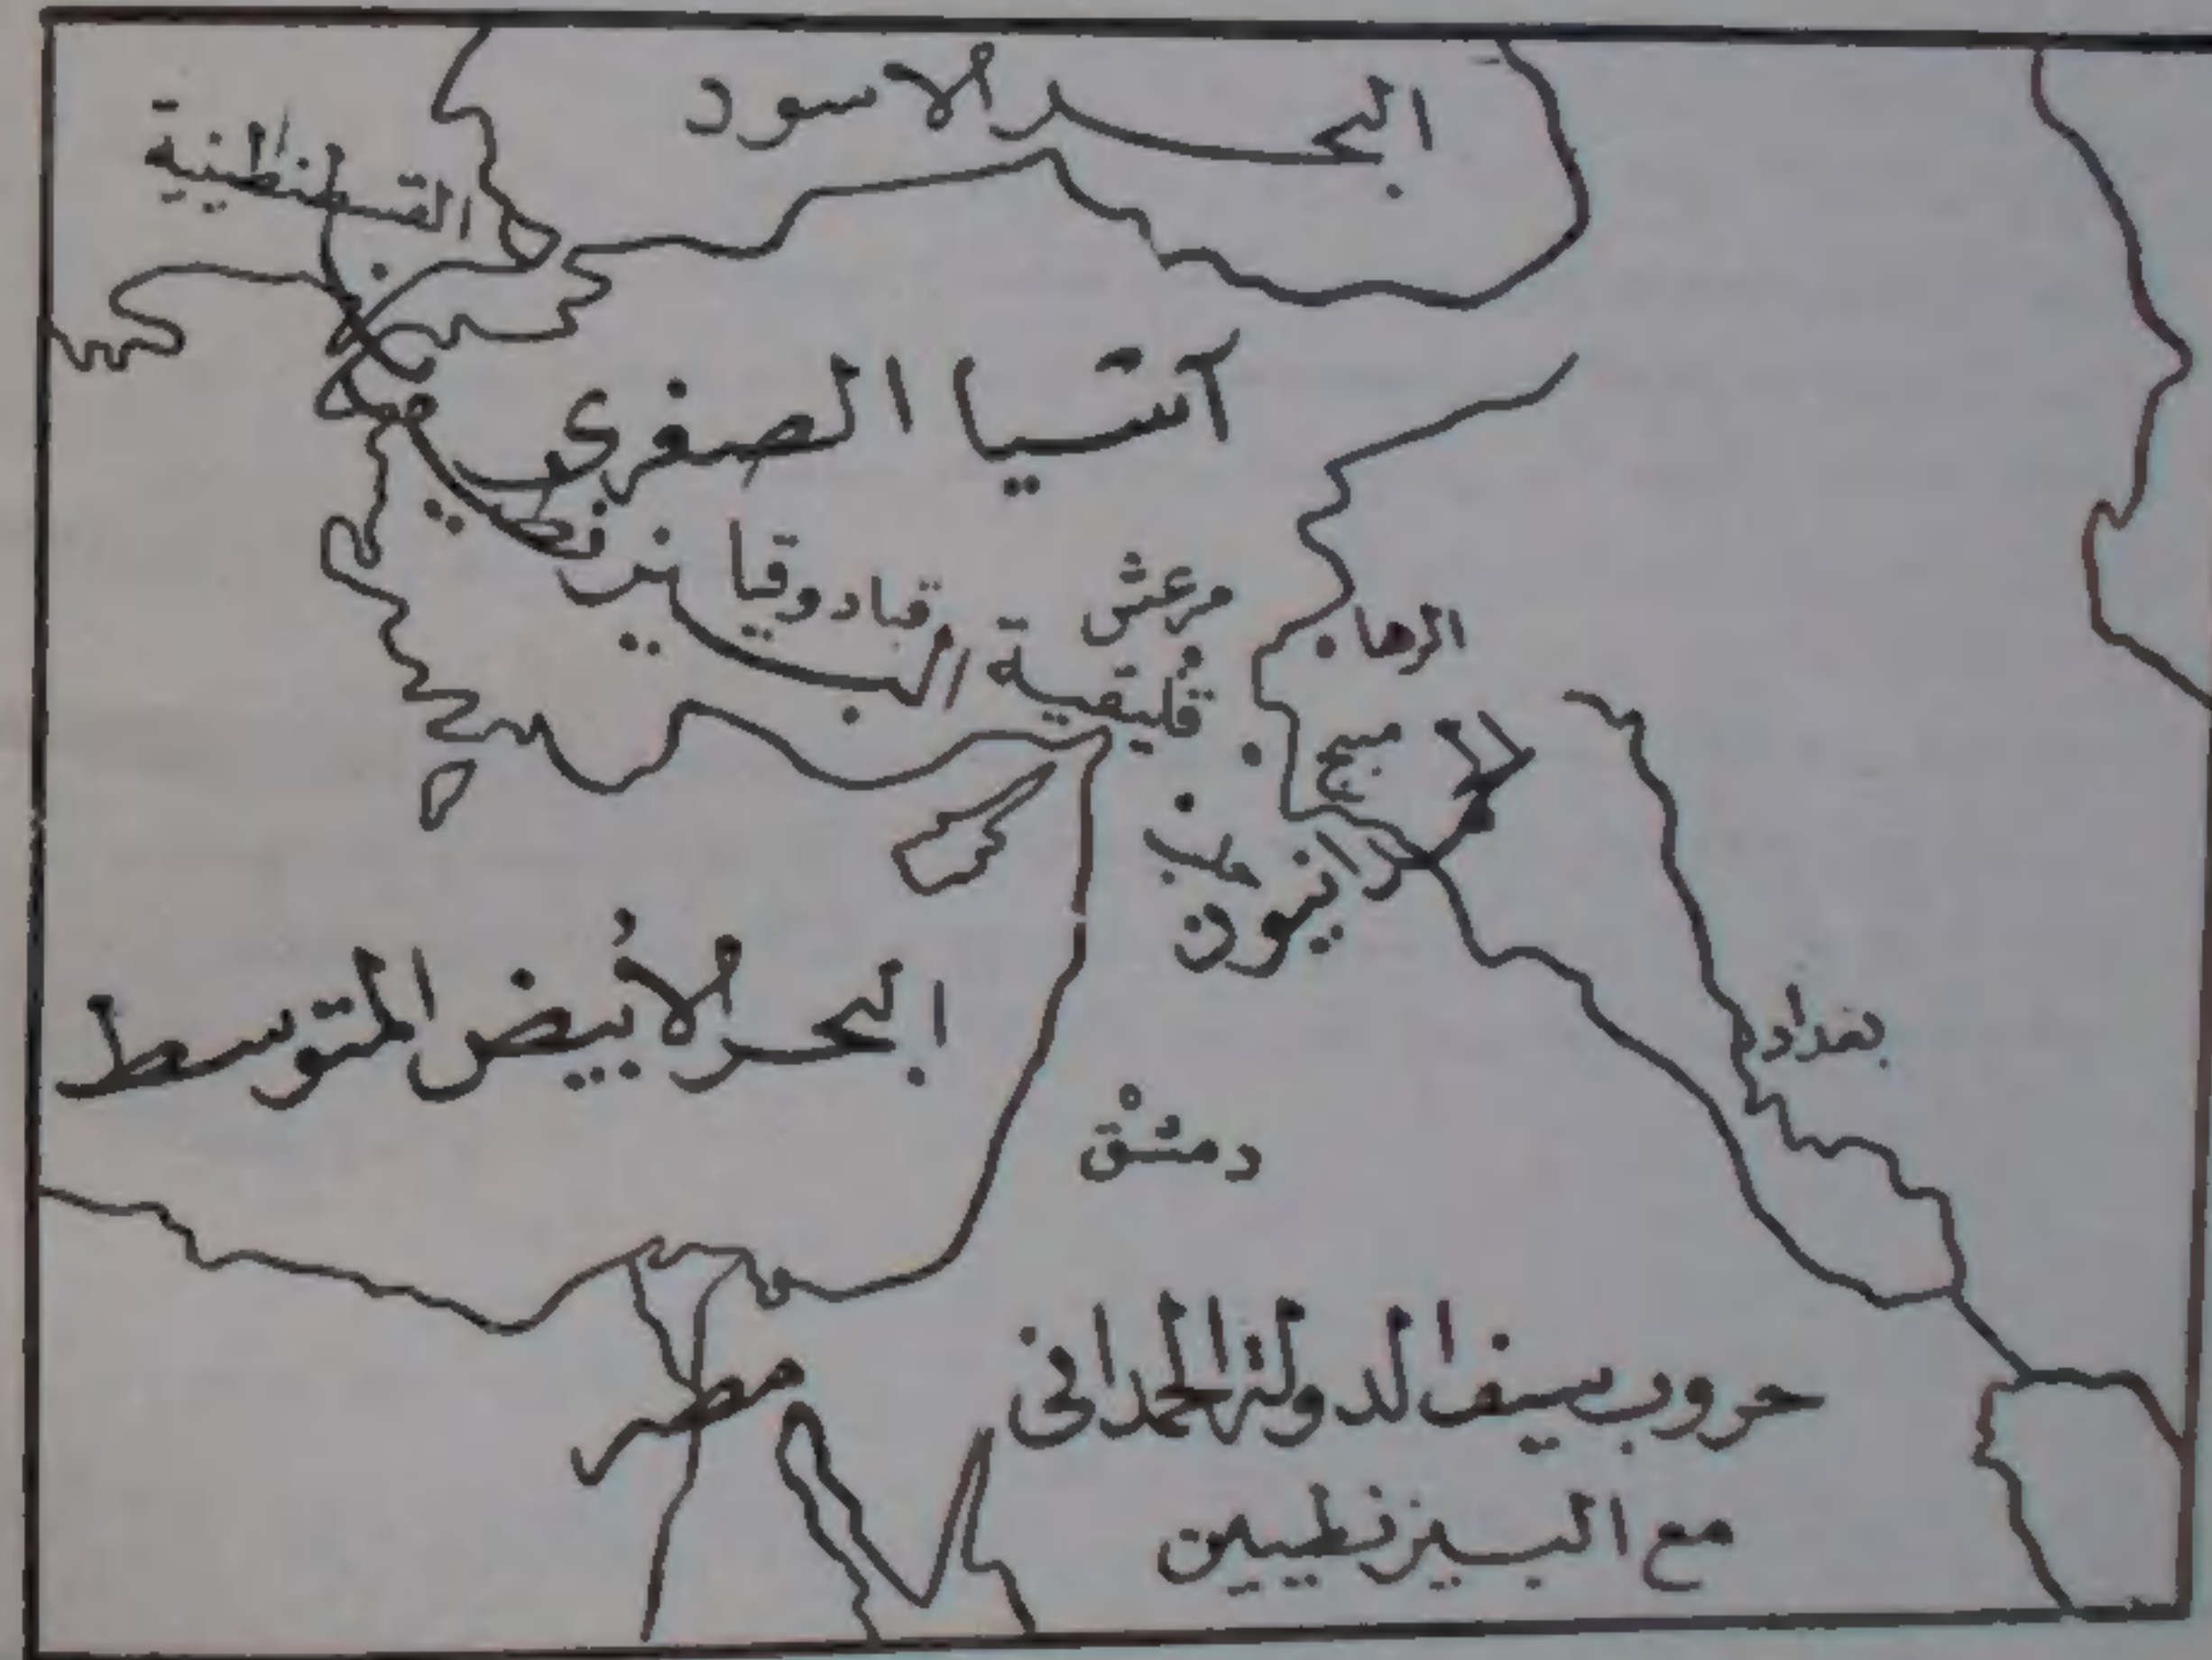 البحر الاسود
القسطنطينية
آسيا الصغرى
البيزنطيون
قبادوقيا
مرعش
قليقية
الرها
منبج
حلب
الحمدانيون
البحر الأبيض المتوسط
بغداد
دمشق
مصر
حروب سيف الدولة الحمداني
مع البيزنطيين